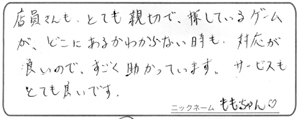 店員さんも、とても親切で、探しているゲーム
が、どこにあるかわからない時も、対応が
良いので、すごく助かっています。サービスも
とても良いです。
ニックネーム ももちゃん♡